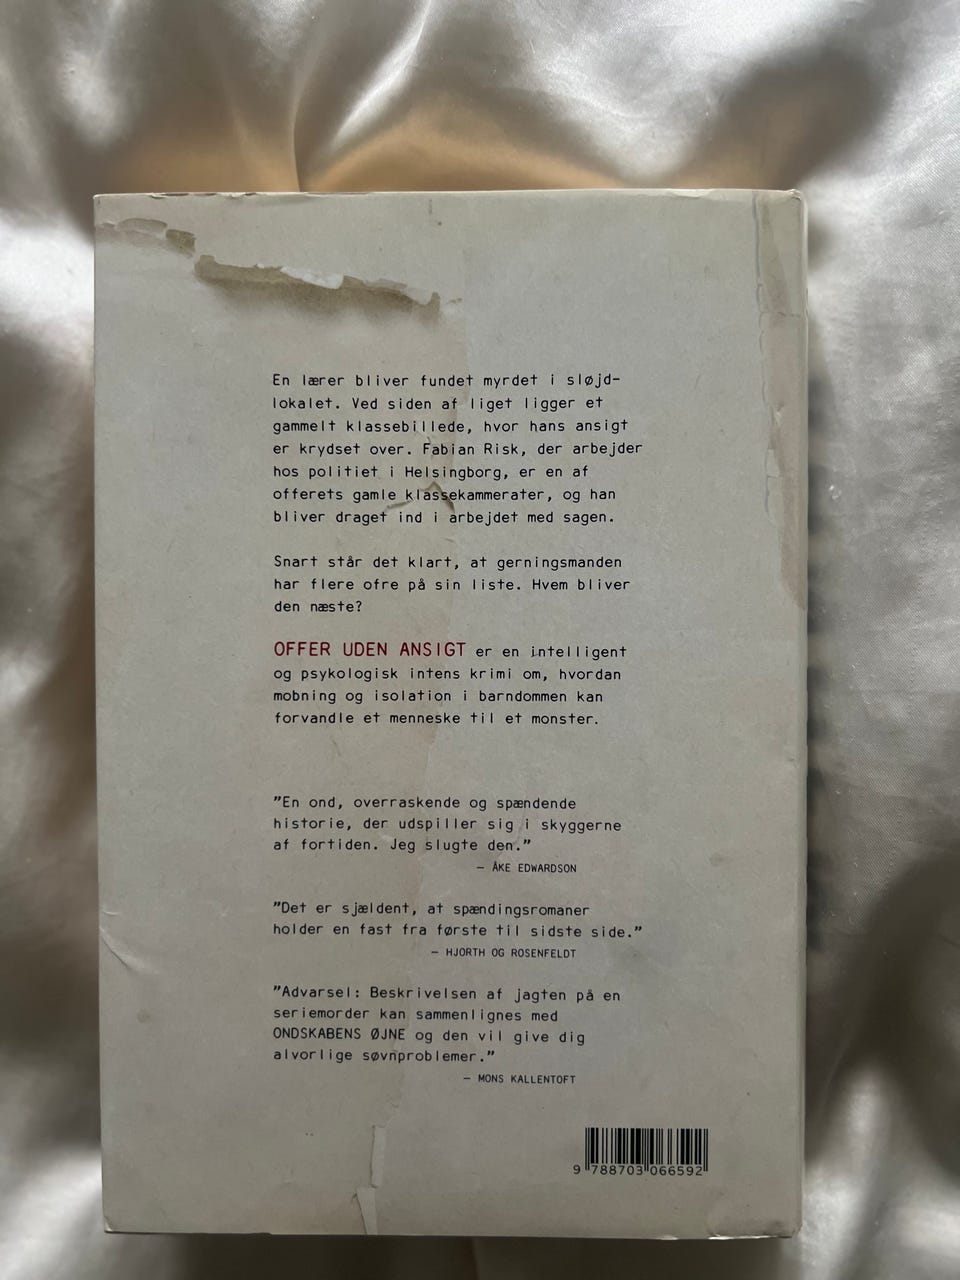 En lærer bliver fundet myrdet i sløjd-
lokalet. Ved siden af liget ligger et
gammelt klassebillede, hvor hans ansigt
er krydset over. Fabian Risk, der arbejder
hos politiet i Helsingborg, er en af
offerets gamle klassekammerater, og han
bliver draget ind i arbejdet med sagen.
Snart står det klart, at gerningsmanden
har flere ofre på sin liste. Hvem bliver
den næste?
OFFER UDEN ANSIGT er en intelligent
og psykologisk intens krimi om, hvordan
mobning og isolation i barndommen kan
forvandle et menneske til et monster.
"En ond, overraskende og spændende
historie, der udspiller sig i skyggerne
af fortiden. Jeg slugte den."
– ÅKE EDWARDSON
"Det er sjældent, at spændingsromaner
holder en fast fra første til sidste side."
– HJORTH OG ROSENFELDT
"Advarsel: Beskrivelsen af jagten på en
seriemorder kan sammenlignes med
ONDSKABENS ØJNE og den vil give dig
alvorlige søvnproblemer."
– MONS KALLENTOFT
9 788703 066592